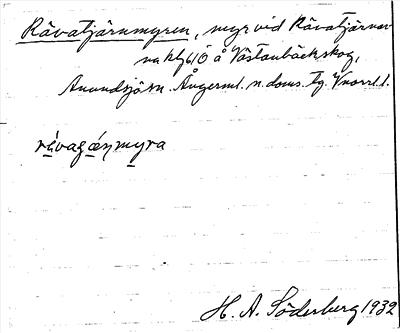 Råvatjärnmyren, myr vid Råvatjärnar
na hfl 6 10 å Västanbäcks skog,
Anundsjö sn. Ångerml. n. doms. lg. Vnorrl. l.
råvagæɳmyra
H. A. Söderberg 1932